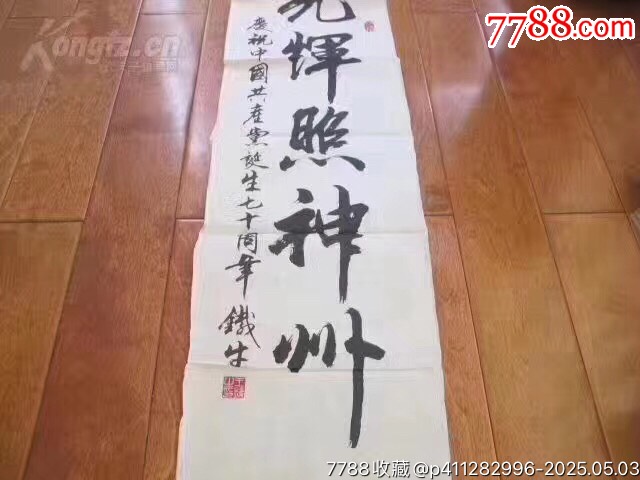 光輝照神州
慶祝中國共產黨誕生七十周年
鐵牛
Kongfz.cn
7788.com
7788收藏@p411282996-2025.05.03